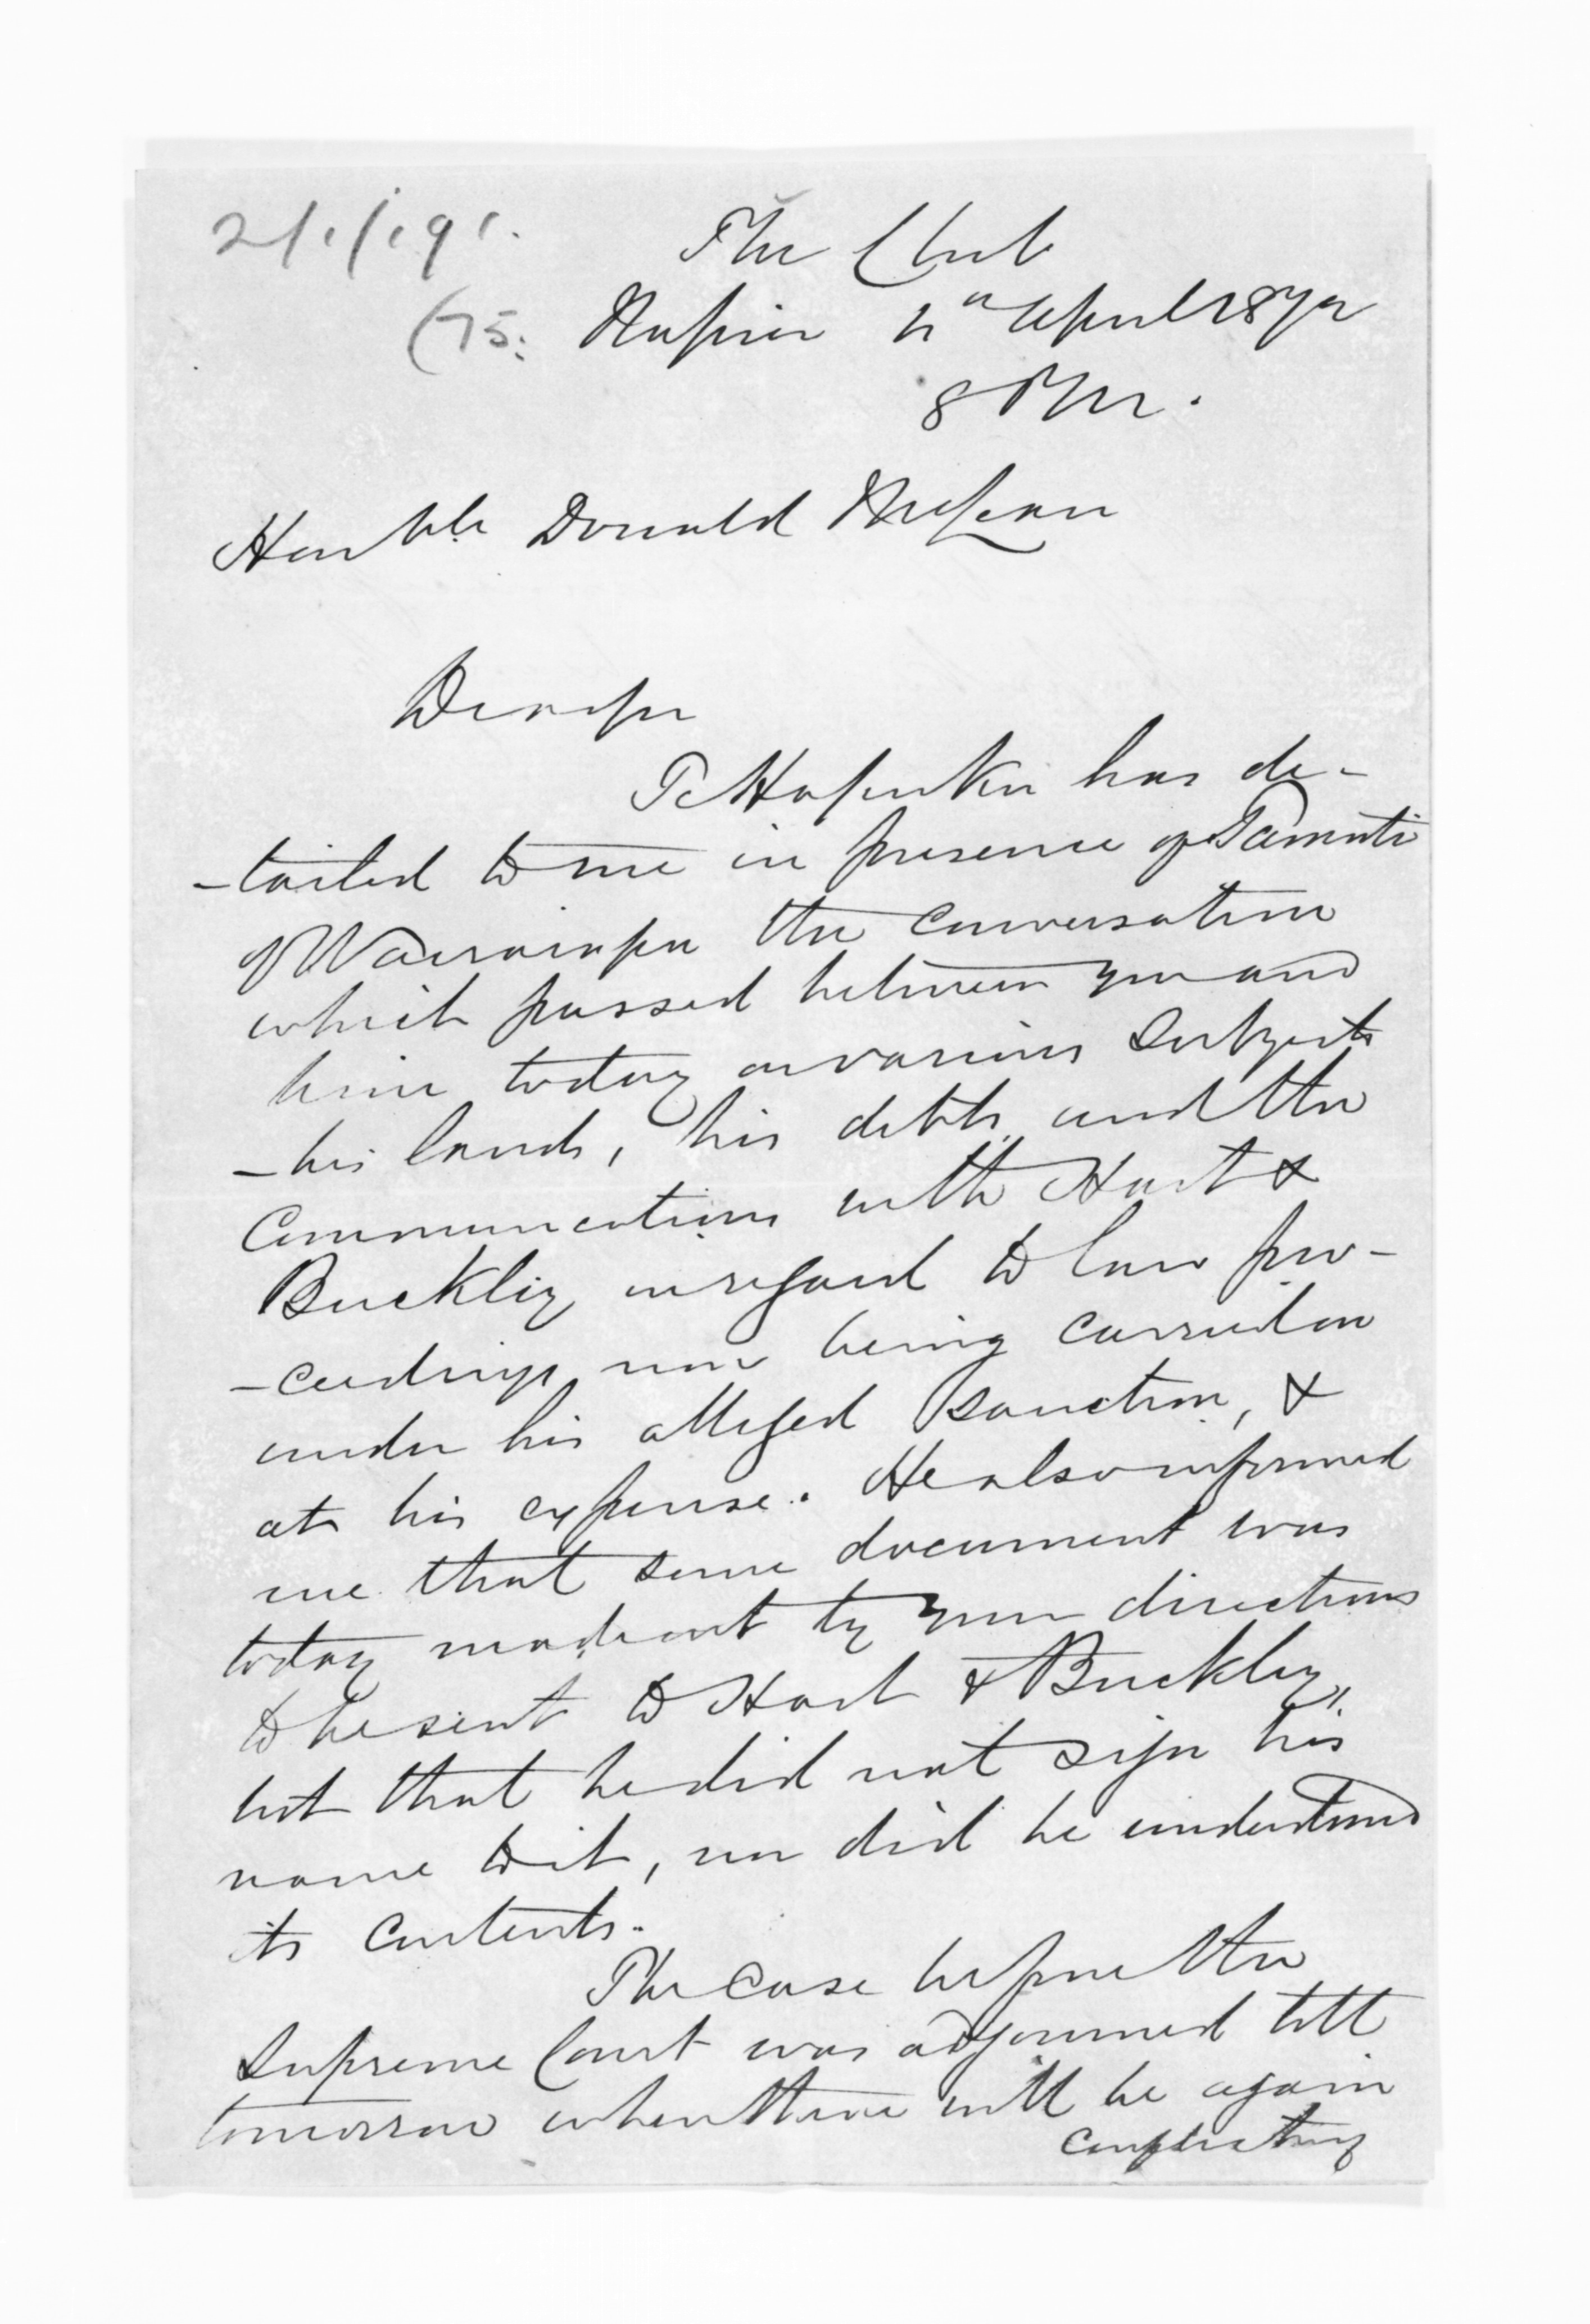 2/1/191.
The Club
(75. Napier 4th April 1872
8 PM.
Hon ble Donald McLean
Dear Sir
Te Hapuku has de-
-tailed to me in presence of Tamati
of Wairarapa the conversation
which passed between you and
him today on various subjects
- his lands, his debts and the
Communications with Hart &
Buckley in regard to law pro-
-ceedings now being carried on
under his alleged sanction, &
at his expense. He also informed
me that some document was
today made out by your directions
to be sent to Hart & Buckley,
but that he did not sign his
name to it, nor did he understand
its contents.
The case before the
Supreme Court was adjourned till
tomorrow when there will be again
conflicting